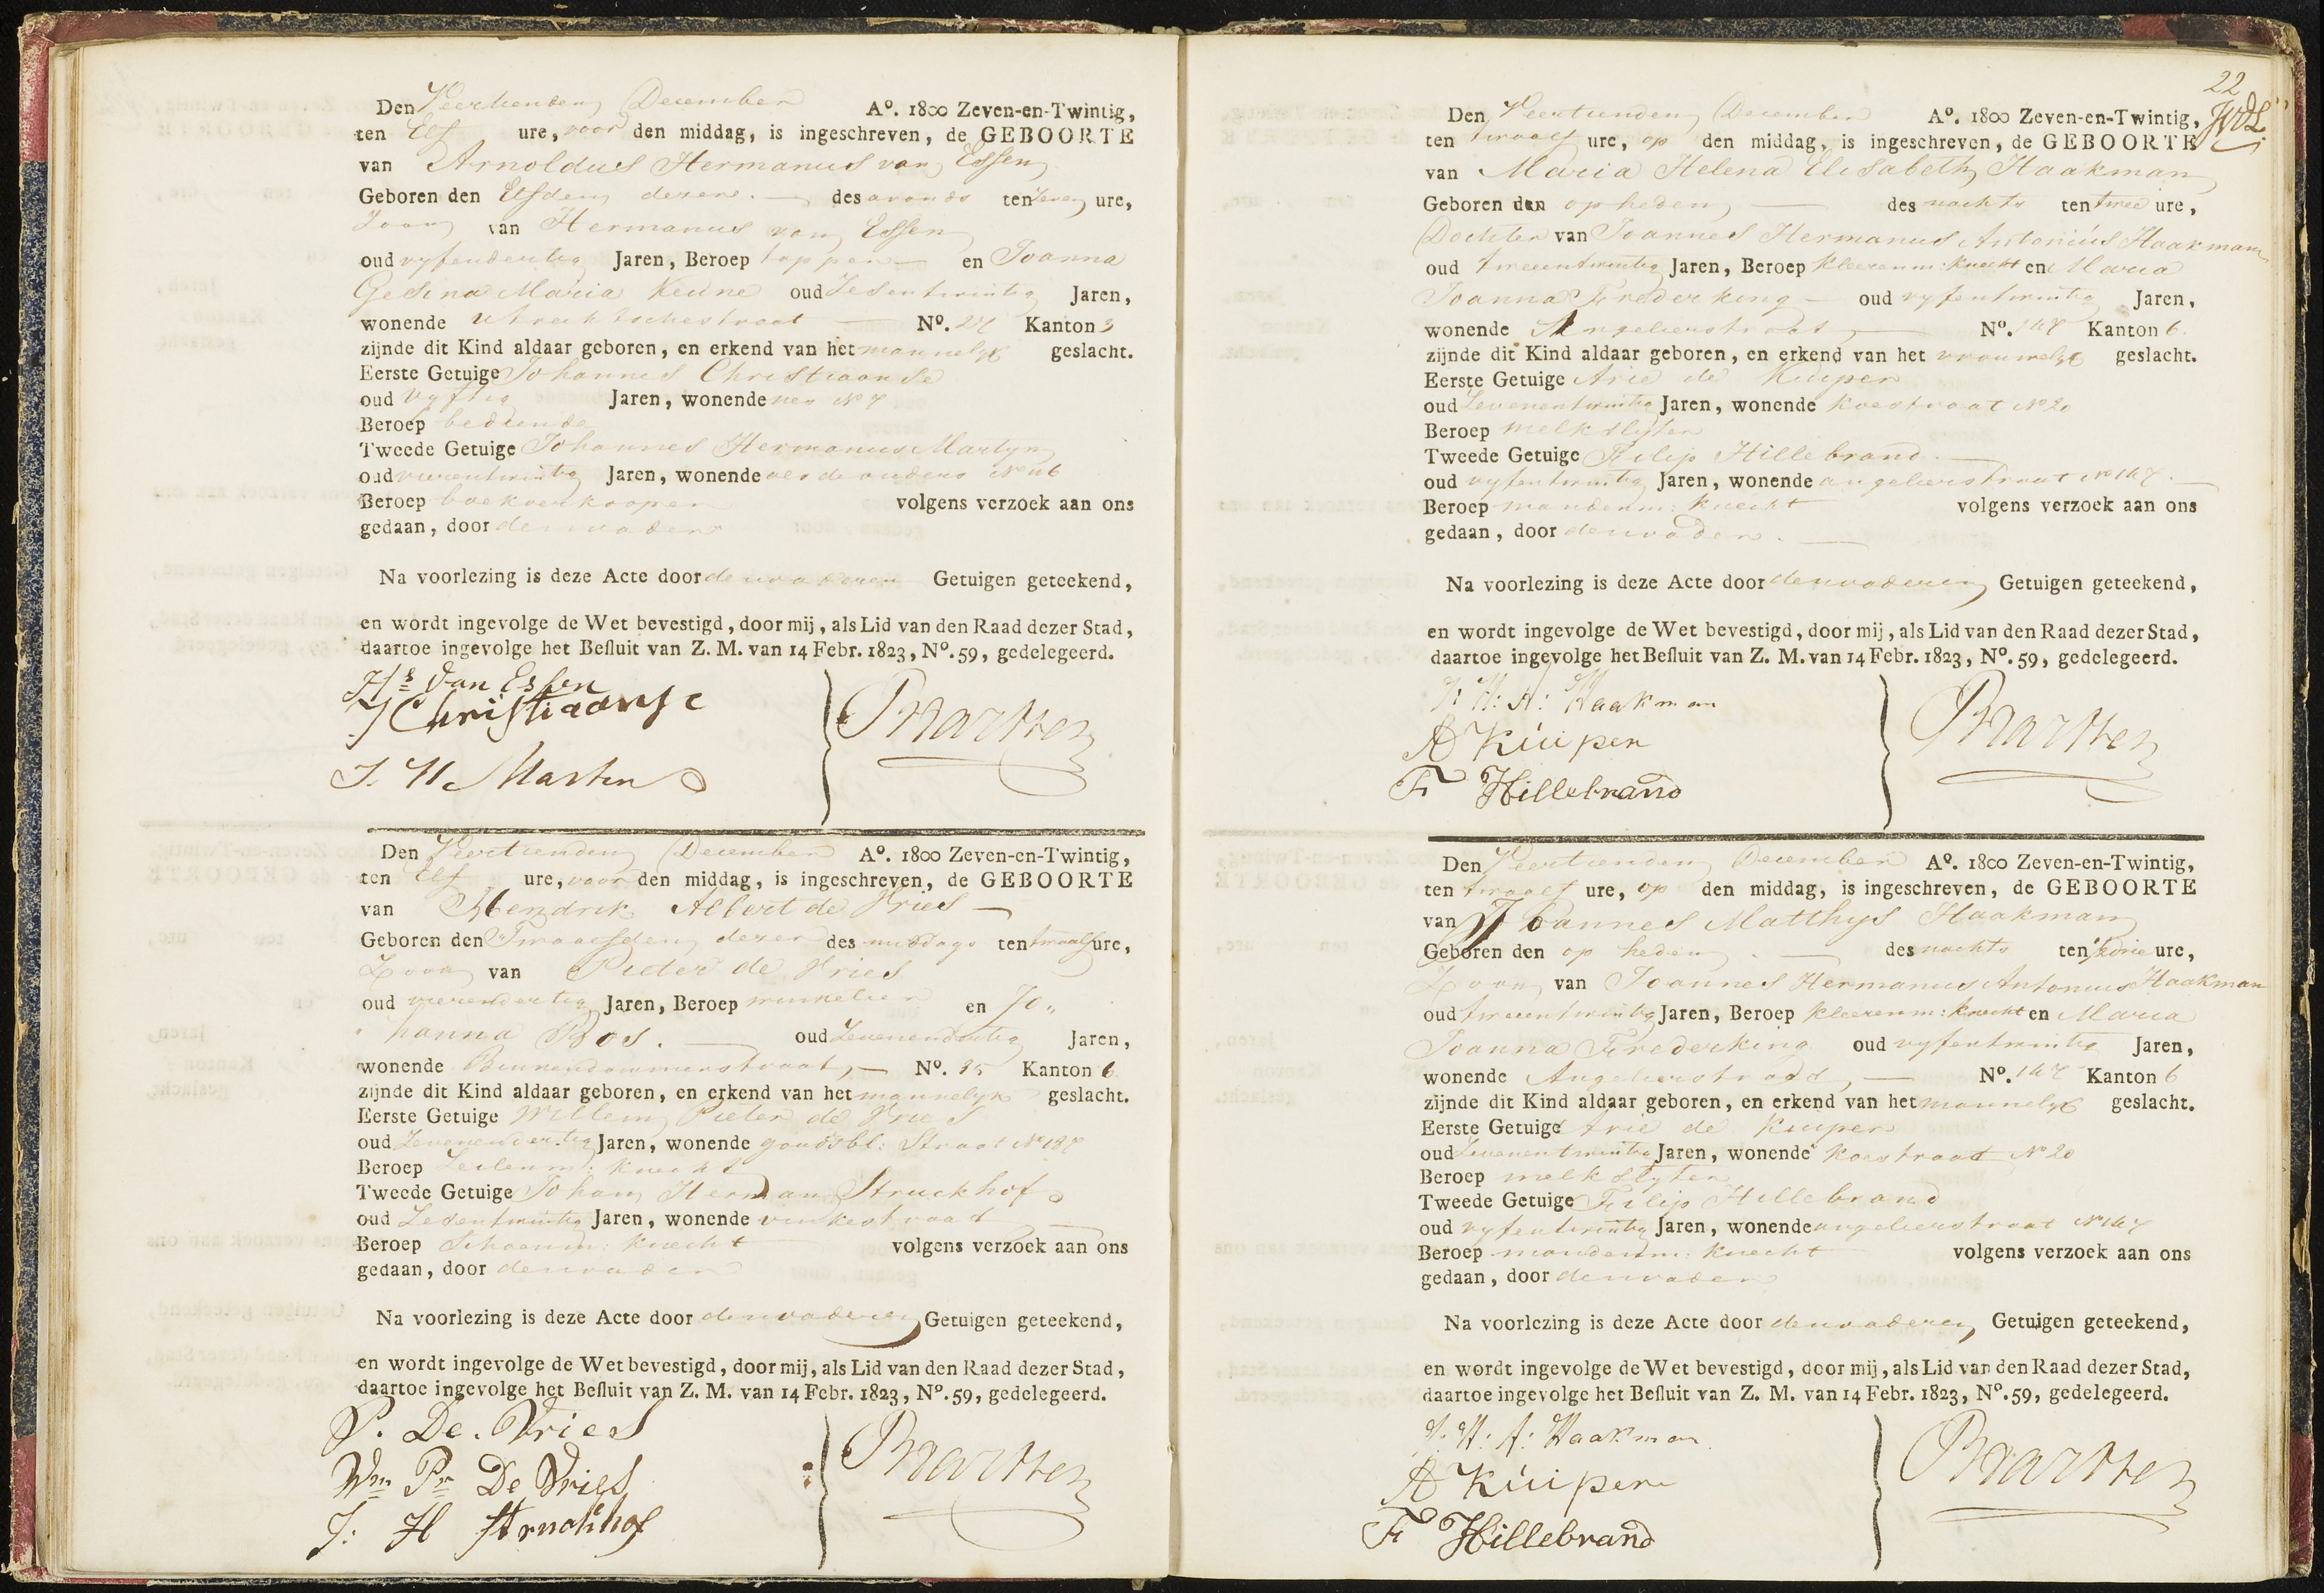 Den Veertienden December Aº. 1800 Zeven-en-Twintig,
ten Elf ure, voor den middag, is ingeschreven, de GEBOORTE
van Arnoldus Hermanus van Essen
Geboren den Elfden dezer. — des avonds ten zeven ure,
Zoon van Hermanus van Essen
oud vyfendertig Jaren, Beroep tapper — en Joanna
Gesina Maria Keune oud Zesentwintig Jaren,
wonende Utrechtschestraat — Nº. 27 Kanton 3
zijnde dit Kind aldaar geboren, en erkend van het mannelyk geslacht.
Eerste Getuige Johannes Christiaanse
oud vyftig Jaren, wonende Nº 7
Beroep bediende
Tweede Getuige Johannes Hermanus Martyn
oud vierentwintig Jaren, wonende Nº 116
Beroep boekverkooper volgens verzoek aan ons
gedaan, door den vader
Na voorlezing is deze Acte door den vader en Getuigen geteekend,
en wordt ingevolge de Wet bevestigd, door mij, als Lid van den Raad dezer Stad,
daartoe ingevolge het Besluit van Z. M. van 14 Febr. 1823, Nº. 59, gedelegeerd.
Hs van Essen
J Christiaanse
J. H. Marten
Den Veertienden December Aº. 1800 Zeven-en-Twintig,
ten Elf ure, voor den middag, is ingeschreven, de GEBOORTE
van Hendrik Albert de Vries —
Geboren den Twaalfden dezer des middags ten twaalf ure,
Zoon van Pieter de Vries
oud vierendertig Jaren, Beroep winkelier en Jo„
hanna Bos. — oud Zevenendertig Jaren,
wonende Binnendommerstraat, — Nº. 35 Kanton 6
zijnde dit Kind aldaar geboren, en erkend van het mannelyk geslacht.
Eerste Getuige Willem Pieter de Vries
oud Zevenendertig Jaren, wonende goudsbl: Straat Nº 187
Beroep Zeilenm: knecht
Tweede Getuige Johan Herman Struckhof
oud Zesentwintig Jaren, wonende vinkestraat —
Beroep Schoenm: knecht volgens verzoek aan ons
gedaan, door den vader
Na voorlezing is deze Acte door den vader en Getuigen geteekend,
en wordt ingevolge de Wet bevestigd, door mij, als Lid van den Raad dezer Stad,
daartoe ingevolge het Besluit van Z. M. van 14 Febr. 1823, Nº. 59, gedelegeerd.
P. De. Vries
Wm Pr De Vries
J: H Struckhof
22
Den Veertienden December Aº. 1800 Zeven-en-Twintig,
ten twaalf ure, op den middag, is ingeschreven, de GEBOORTE
van Maria Helena Elisabeth Haakman
Geboren den op heden — des nachts ten twee ure,
Dochter van Joannes Hermanus Antonius Haakman
oud tweeentwintig Jaren, Beroep kleerenm: knecht en Maria
Joanna Frederking — oud vyfentwintig Jaren,
wonende Angelierstraat, — Nº. 147 Kanton 6.
zijnde dit Kind aldaar geboren, en erkend van het vrouwelyk geslacht.
Eerste Getuige Arie de Kuiper
oud Zevenentwintig Jaren, wonende Koestraat Nº 20
Beroep melkslyter
Tweede Getuige Filip Hillebrand. —
oud vyfentwintig Jaren, wonende angelierstraat Nº 147. —
Beroep mandenm: knecht volgens verzoek aan ons
gedaan, door den vader. —
Na voorlezing is deze Acte door den vader en Getuigen geteekend,
en wordt ingevolge de Wet bevestigd, door mij, als Lid van den Raad dezer Stad,
daartoe ingevolge het Besluit van Z. M. van 14 Febr. 1823, Nº. 59, gedelegeerd.
J: H: A: Haakman
A Kuiper
F Hillebrand
Den Veertienden December Aº. 1800 Zeven-en-Twintig,
ten twaalf ure, op den middag, is ingeschreven, de GEBOORTE
van Joannes Matthys Haakman
Geboren den op heden. — des nachts ten drie ure,
Zoon van Joannes Hermanus Antonius Haakman
oud tweeentwintig Jaren, Beroep kleerenm: knecht en Maria
Joanna Frederking oud vyfentwintig Jaren,
wonende Angelierstraat, — Nº. 147 Kanton 6
zijnde dit Kind aldaar geboren, en erkend van het mannelyk geslacht.
Eerste Getuige Arie de Kuiper
oud Zevenentwintig Jaren, wonende Koestraat Nº 20
Beroep melkslyter
Tweede Getuige Filip Hillebrand
oud vyfentwintig Jaren, wonende angelierstraat Nº 147
Beroep mandenm: knecht volgens verzoek aan ons
gedaan, door den vader
Na voorlezing is deze Acte door den vader en Getuigen geteekend,
en wordt ingevolge de Wet bevestigd, door mij, als Lid van den Raad dezer Stad,
daartoe ingevolge het Besluit van Z. M. van 14 Febr. 1823, Nº. 59, gedelegeerd.
J: H: A: Haakman.
A Kuiper
F Hillebrand